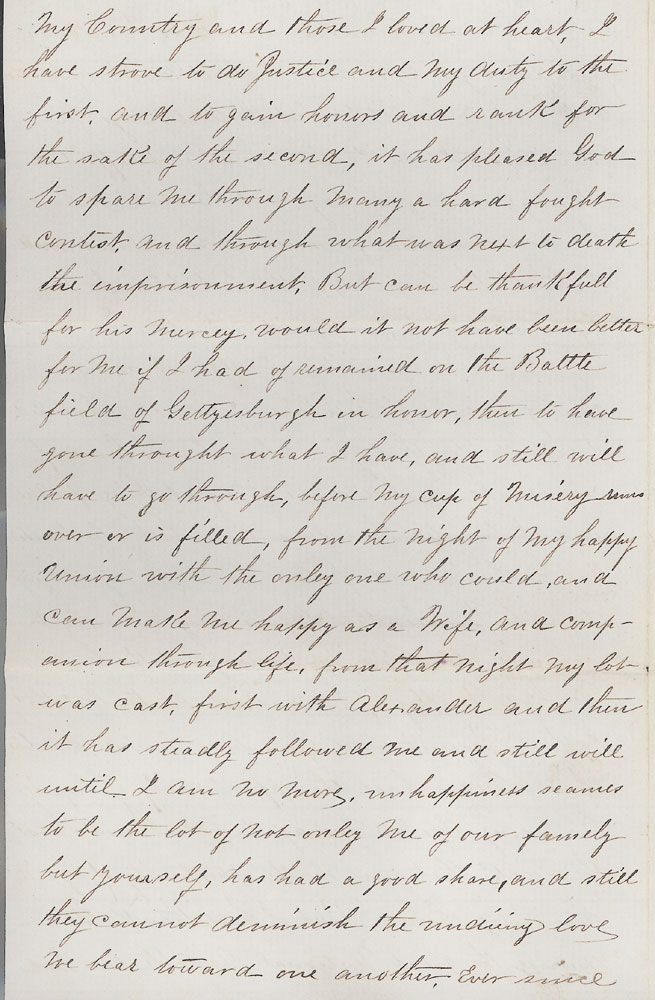 My Country and those I loved at heart, I
have strove to do Justice and My duty to the
first, and to gain honors and rank for
the sake of the second, it has pleased God
to spare me through Many a hard fought
contest, and through what was next to death
the imprisonment, But can be thankfull
for his Mercey, would it not have been better
for Me if I had of remained on the Battle
field of Gettyesburgh in honor, then to have
gone throught what I have, and still will
have to go through, before My cup of Misery runs
over or is filled, from the night of My happy
Union with the onley one who could, and
can Make Me happy as a Wife, and comp-
anion through life, from that night My lot
was cast, first with Alexander and then
it has steadly followed Me and still will
until I am no More, unhappiness seames
to be the lot of not onley Me of our famely
but yourself, has had a good share, and still
they cannot deminish the undieing love
We bear toward one another, Ever since